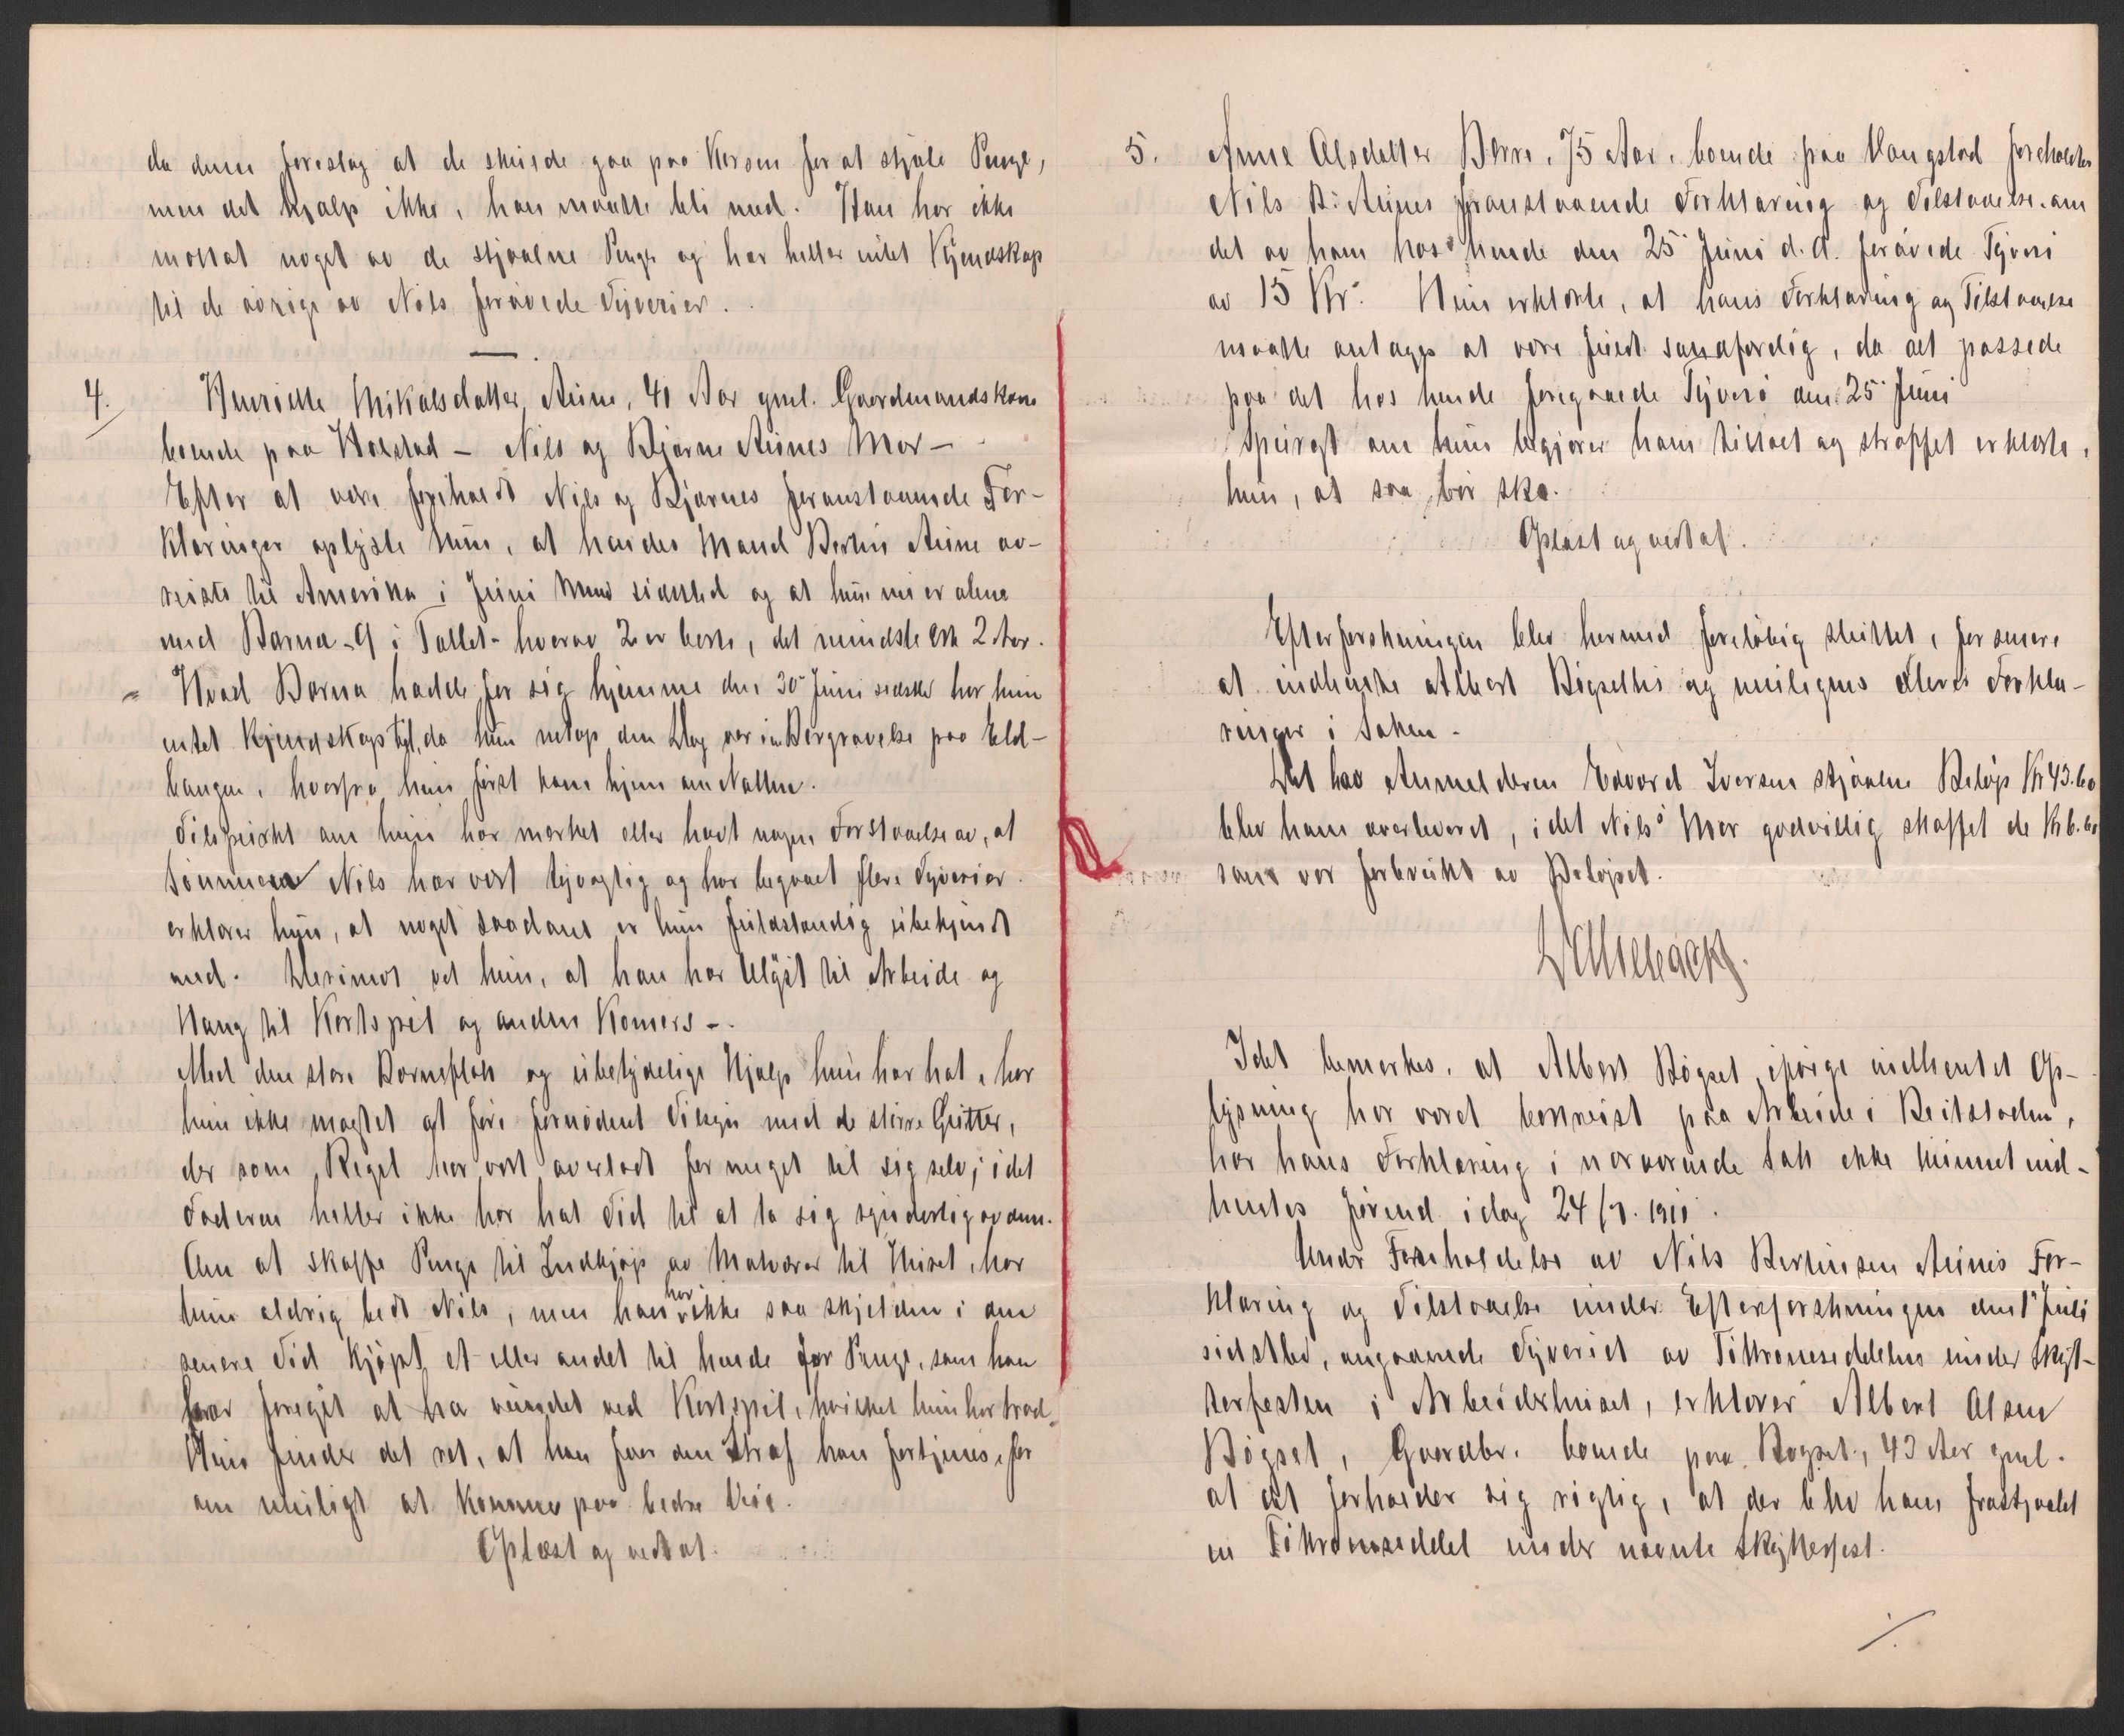 da denne foreslog at de skulde gaa paa Kersen for at stjæle Penge,
men det hjalp ikke, han maatte bli med. Han har ikke
mottat noget av de stjaalne Penge og har heller intet Kjendskap
til de øvrige av Nils forøvede Tyverier.
4. Henriette Mikalsdatter Aune, 41 Aar gml. Gaardmandskone
boende paa Holstad - Nils og Bjarne Aunes Mor -
Efter at være foreholdt Nils og Bjarnes foranstaaende For-
klaringer oplyste hun, at hendes Mand Bertin Aune av-
reiste til Amerika i Juni Mnd sidstled og at hun nu er alene
med Barna - 9 i Tallet - hvorav 2 er borte, det mindste er 2 Aar.
Hvad Barna hadde for sig hjemme den 30' Juni sidstl. har hun
intet Kjendskap til, da hun netop den Dag var i en Begravelse paa Eld-
bangen, hvorfra hun først kom hjem om Natten.
Tilspurt om hun har merket eller havt nogen Forstaaelse av, at
Sønnen Nils har vært tyvagtig og har begaaet flere Tyverier
erklærer hun, at noget saadant er hun fuldstændig ubekjendt
med. Derimot vet hun, at han har Ulyst til Arbeide og
Hang til Kortspil og anden Komers -.
Med den store Barneflok og ubetydelige Hjælp hun har hat, har
hun ikke magtet at føre fornødent Tilsyn med de større Gutter,
der som Regel har vært overladt for meget til sig selv; idet
Faderen heller ikke har hat Tid til at ta sig synderlig av dem.
Om at skaffe Penge til Indkjøp av Matvarer til Huset, har
hun aldrig bedt Nils, men han har ikke saa skjelden i den
senere Tid kjøpt et eller andet til hende for Penge, som han
har foregit at ha vundet ved Kortspil, hvilket hun har trod.
Hun finder det ret, at han faar den Straf han fortjener, for
om muligt at komme paa bedre Veie.
Oplæst og vedtat.
5. Anne Olsdatter Berre, 75 Aar, boende paa Vangstad foreholdtes
Nils B. Aunes foranstaaende Forklaring og Tilstaaelse om
det av ham hos hende den 25' Juni d. A. forøvede Tyveri
av 15 Kr. Hun erklærte, at hans Forklaring og Tilstaaelse
maatte antages at være fuldt sandfærdig, da det passede
paa det hos hende foregaaede Tyveri den 25' Juni
Spurgt om hun begjærer ham tiltalt og straffet erklærte,
hun, at saa bør ske.
Oplæst og vedtat.
Efterforskningen blev hermed foreløbig sluttet, for senere
at indhente Albert Bøgsettes og muligens fleres Forkla-
ringer i Saken -
Det hos Anmelderen Edvard Iversen stjaalne Beløp Kr 43.60
blev ham overleveret, idet Nils's Mor godvillig skaffet de Kr 6.60
som var forbrukt av Beløpet.
Idet bemerkes, at Albert Bøgset ifølge indhentet Op-
lysning har været bortreist paa Arbeide i Beitstaden,
har hans Forklaring i nærværende Sak ikke kunnet ind-
hentes førend idag 24/7. 1911.
Under Foreholdelse av Nils Bertinsen Aunes For-
klaring og Tilstaaelse under Efterforskningen den 1' Juli
sidstled, angaaende Tyveriet av Tikronesedlelen under Skyt-
terfesten i Arbeiderhuset, erklærer Albert Olsen
Bøgset, Gaardbr. boende paa Bøgset, 43 Aar gml.
at det forholder sig rigtig, at der blev ham frastjaalet
en Tikroneseddel under nævnte Skytterfest.
./.